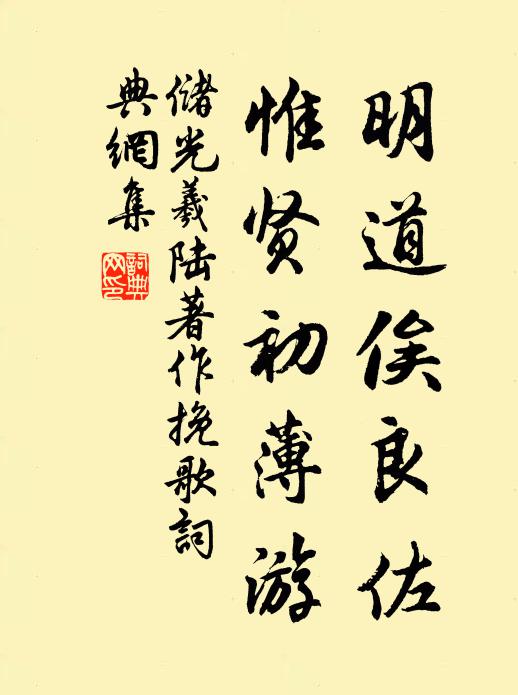 明道俟良佐
惟贤初薄游
储光羲陆著作挽歌詞
典網集
詞典网印